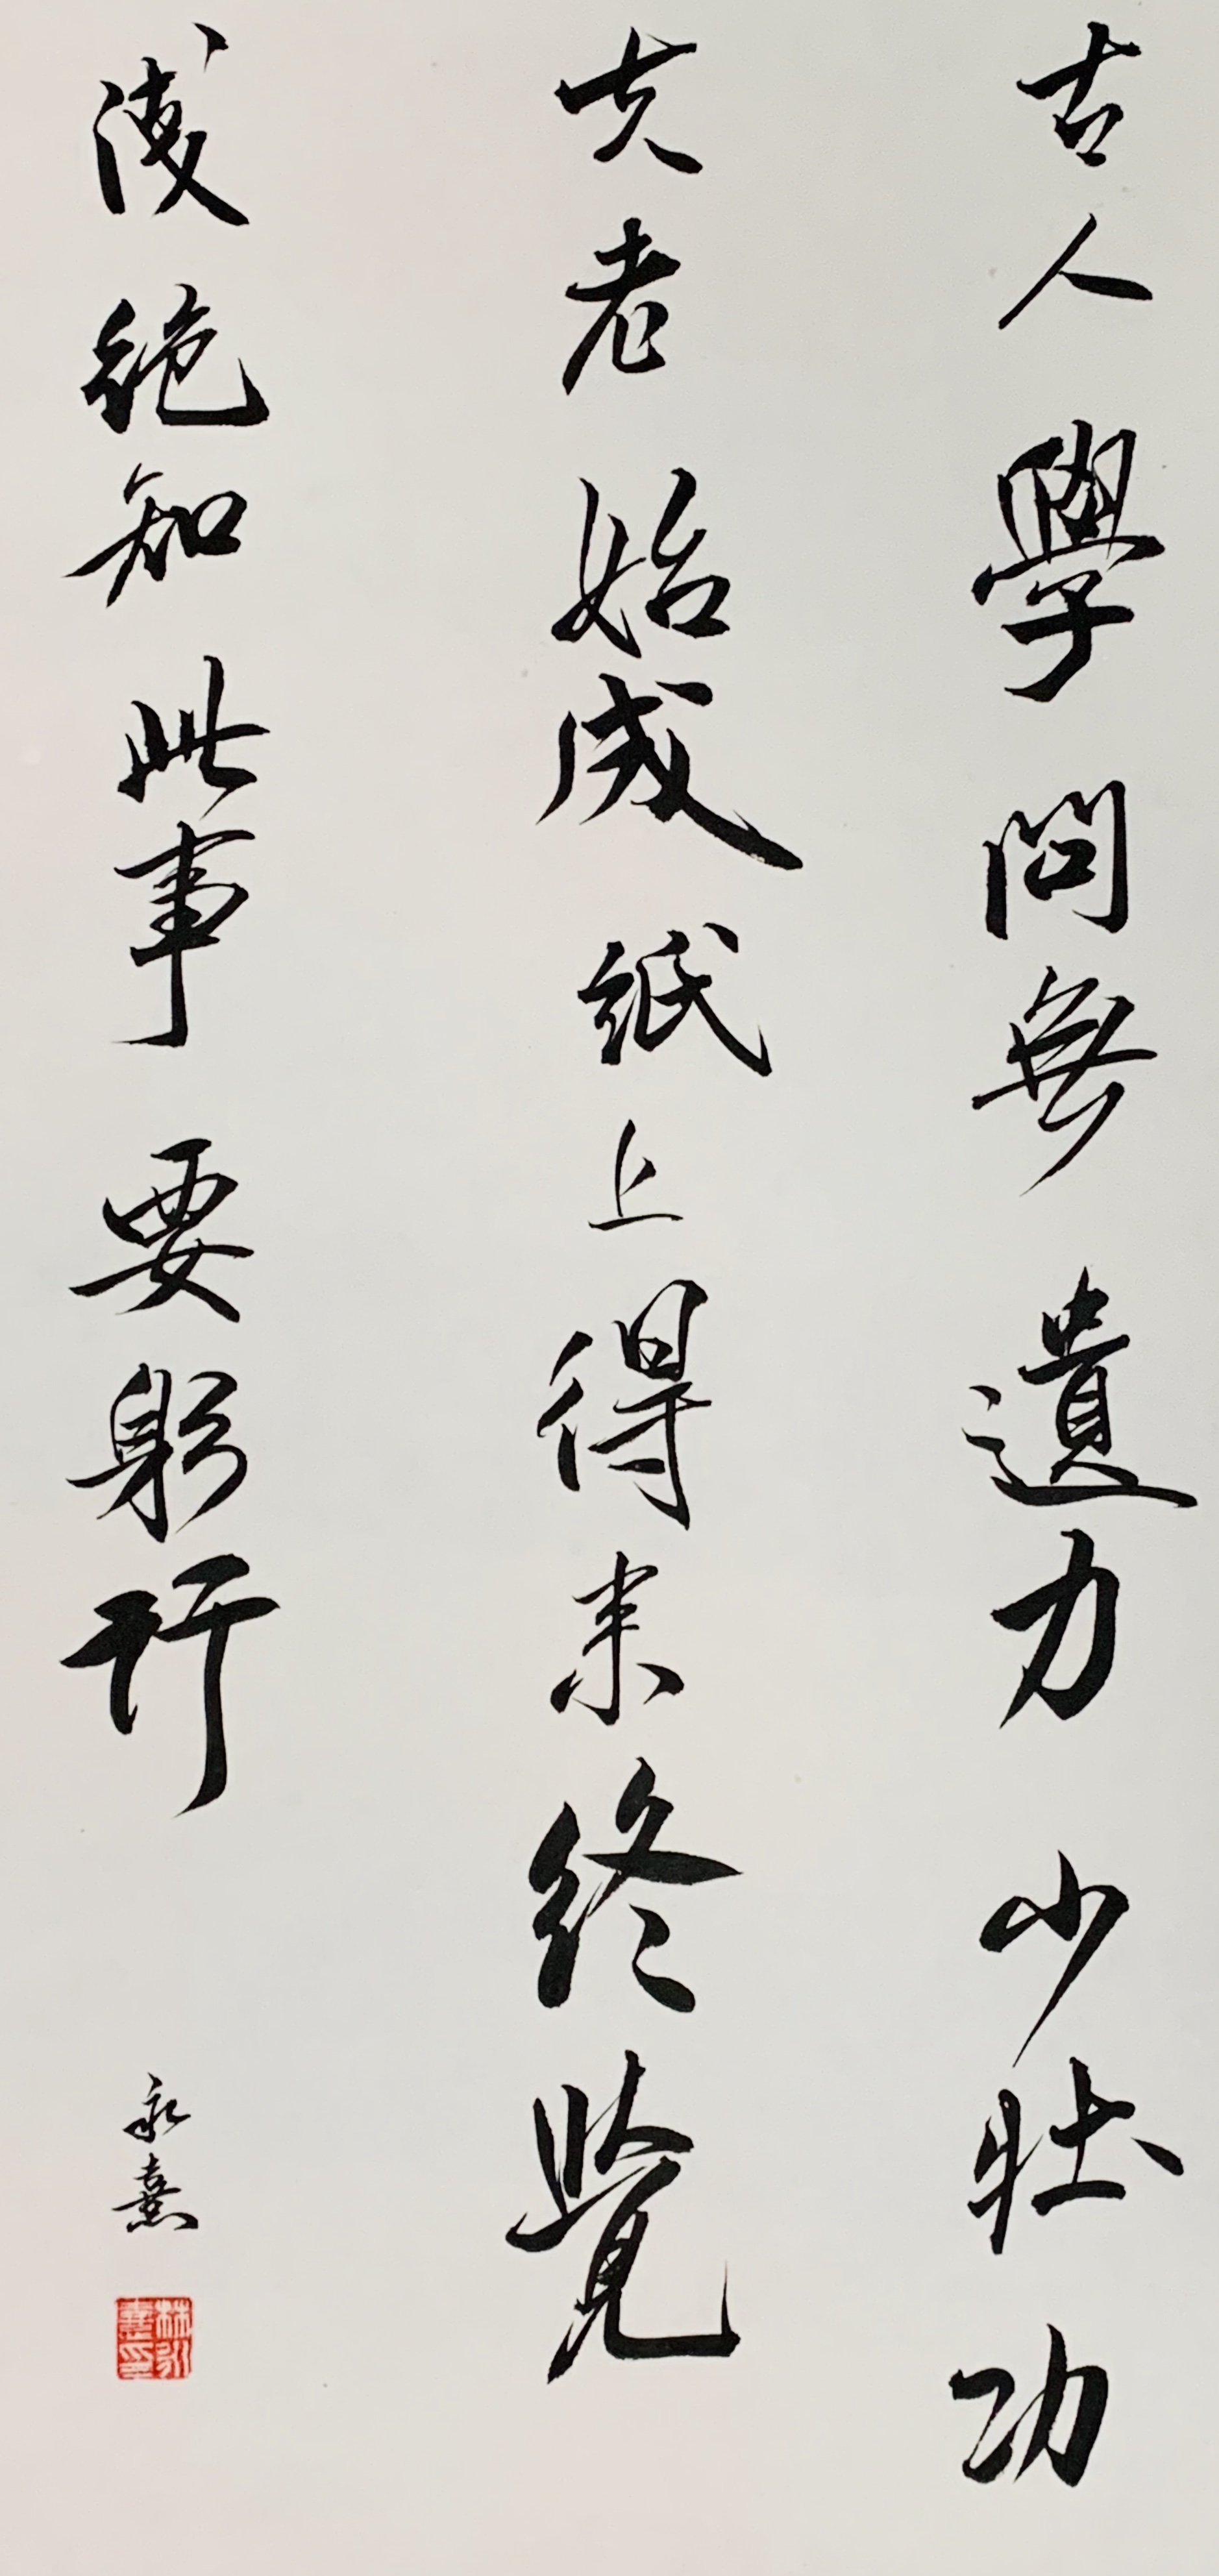 古人學問無遺力少壯功
夫老始成紙上得来終覺
淺絕知此事要躬行
永熹
林永熹印